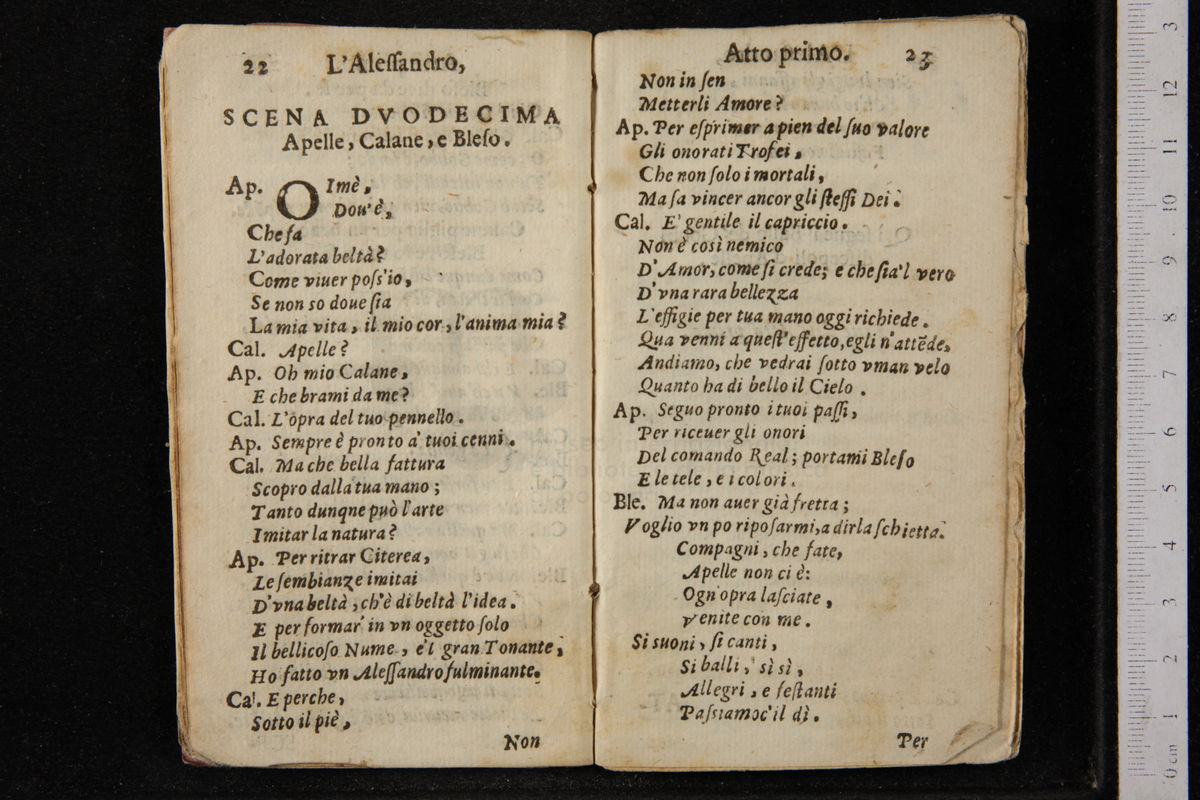 22 L'Aleſſandro,
SCENA DVODECIMA
Apelle, Calane, e Bleſo.
Ap. OImè,
Dou'è,
Che fa
L'adorata beltà?
Come viuer poſs'io,
Se non so doue ſia
La mia vita, il mio cor, l'anima mia?
Cal. Apelle?
Ap. Oh mio Calane,
E che brami da me?
Cal. L'opra del tuo pennello.
Ap. Sempre è pronto a' tuoi cenni.
Cal. Ma che bella fattura
Scopro dalla tua mano;
Tanto dunqne può l'arte
Imitar la natura?
Ap. Per ritrar Citerea,
Le ſembianze imitai
D'vna beltà, ch'è di beltà l'idea.
E per formar' in vn oggetto ſolo
Il bellicoſo Nume, e'l gran Tonante,
Ho fatto vn Aleſſandro fulminante.
Cal. E perche,
Sotto il piè,
Non
Atto primo. 23
Non in ſen
Metterli Amore?
Ap. Per eſprimer a pien del ſuo valore
Gli onorati Trofei,
Che non ſolo i mortali,
Ma ſa vincer ancor gli ſteſſi Dei.
Cal. E' gentile il capriccio.
Non è così nemico
D'Amor, come ſi crede; e che ſia'l vero
D'vna rara bellezza
L'effigie per tua mano oggi richiede.
Qua venni a queſt'effetto, egli n'attẽde,
Andiamo, che vedrai ſotto vman velo
Quanto ha di bello il Cielo.
Ap. Seguo pronto i tuoi paſſi,
Per riceuer gli onori
Del comando Real; portami Bleſo
E le tele, e i colori.
Ble. Ma non auer già fretta;
Voglio vn po ripoſarmi, a dirla ſchietta.
Compagni, che fate,
Apelle non ci è:
Ogn'opra laſciate,
Venite con me.
Si suoni, ſi canti,
Si balli, sì sì,
Allegri, e feſtanti
Paſsiamoc'il dì.
Per
0 cm 1 2 3 4 5 6 7 8 9 10 11 12 13